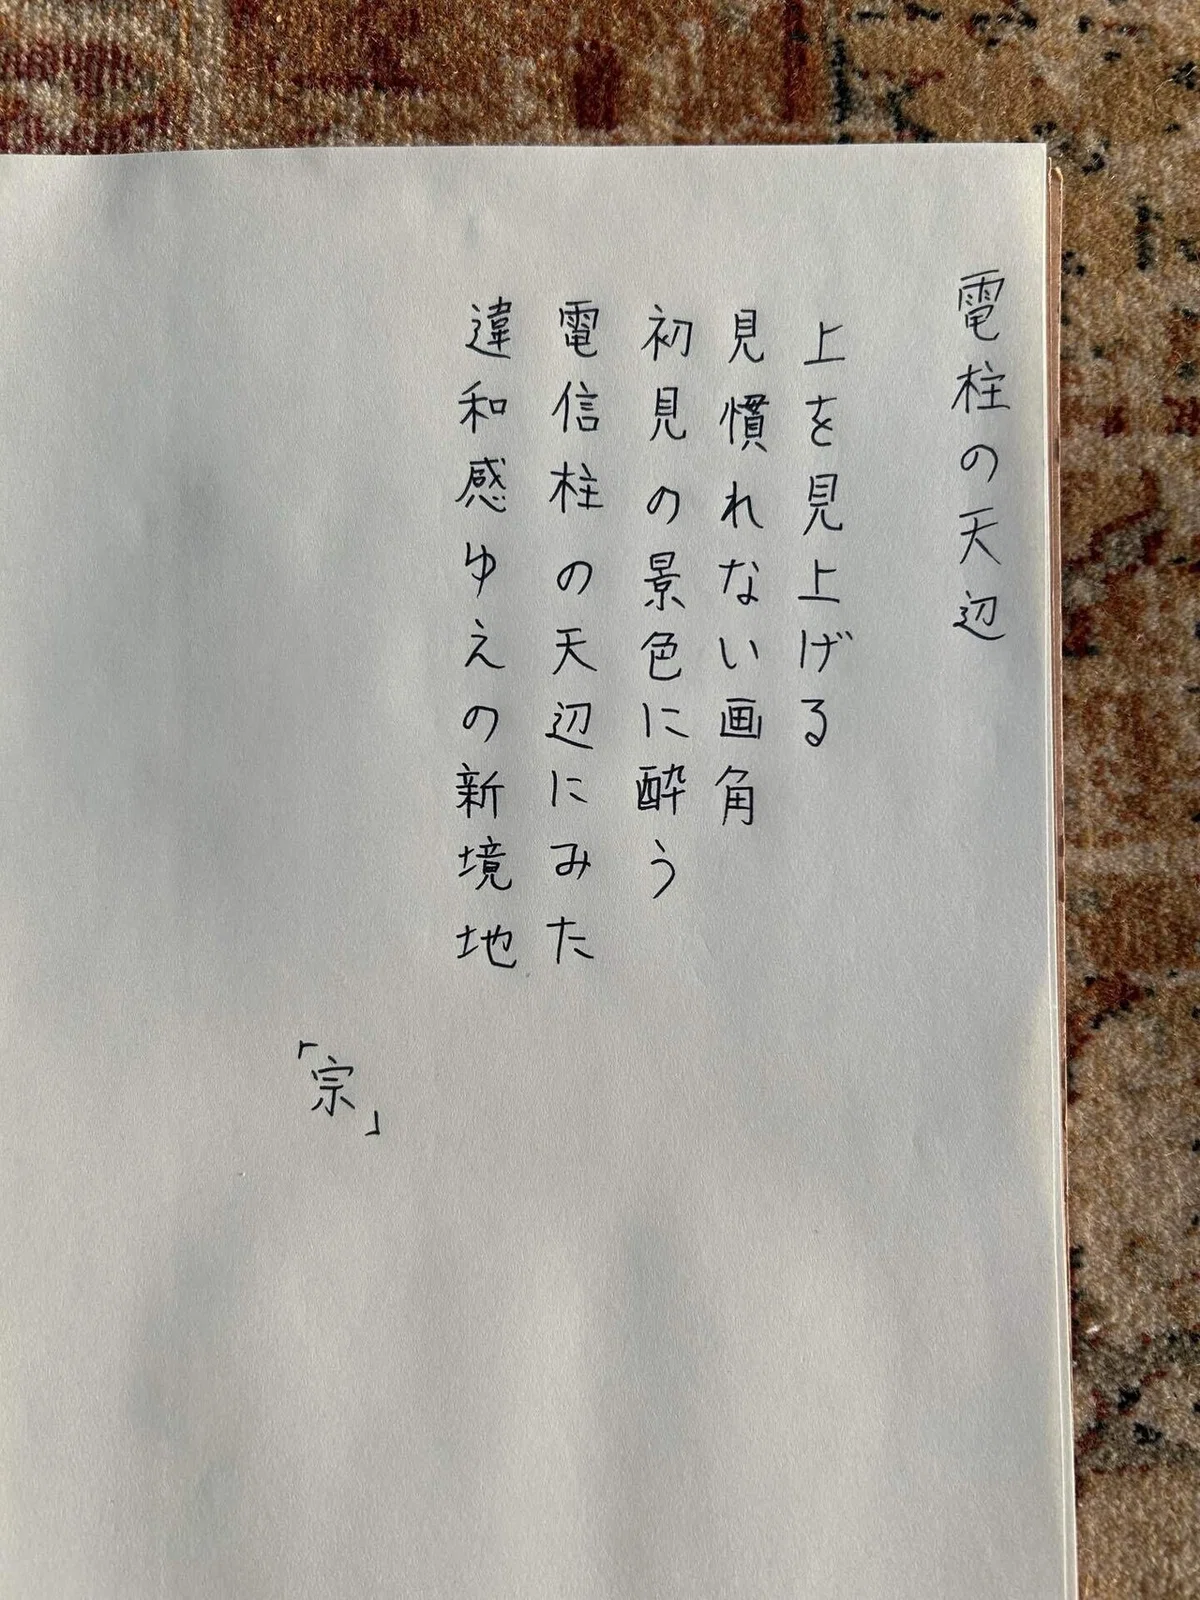 電柱の天辺
上を見上げる
見慣れない画角
初見の景色に酔う
電信柱の天辺にみた
違和感ゆえの新境地
「宗」